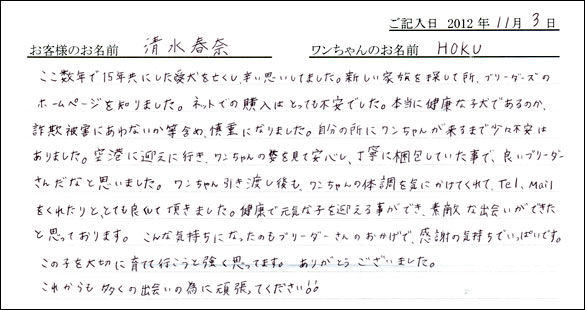 ご記入日 2012 年 11 月 3 日
お客様のお名前 清水春奈 ワンちゃんのお名前 HOKU
ここ数年で15年共にした愛犬を亡くし、辛い思いしてました。新しい家族を探して所、ブリーダーズの
ホームページを知りました。ネットでの購入はとっても不安でした。本当に健康な子犬であるのか、
詐欺被害にあわないか等含め、慎重になりました。自分の所にワンちゃんが来るまで少々不安は
ありました。空港に迎えに行き、ワンちゃんの姿を見て安心し、丁寧に梱包していた事で、良いブリーダー
さんだなと思いました。ワンちゃん引き渡し後も、ワンちゃんの体調を気にかけてくれて、Tel、Mail
をくれたりと、とても良くして頂きました。健康で元気な子を迎える事ができ、素敵な出会いができた
と思っております。こんな気持ちになったのもブリーダーさんのおかげで、感謝の気持ちでいっぱいです。
この子を大切に育てて行こうと強く思ってます。ありがとうございました。
これからも多くの出会いの為に頑張ってください!!